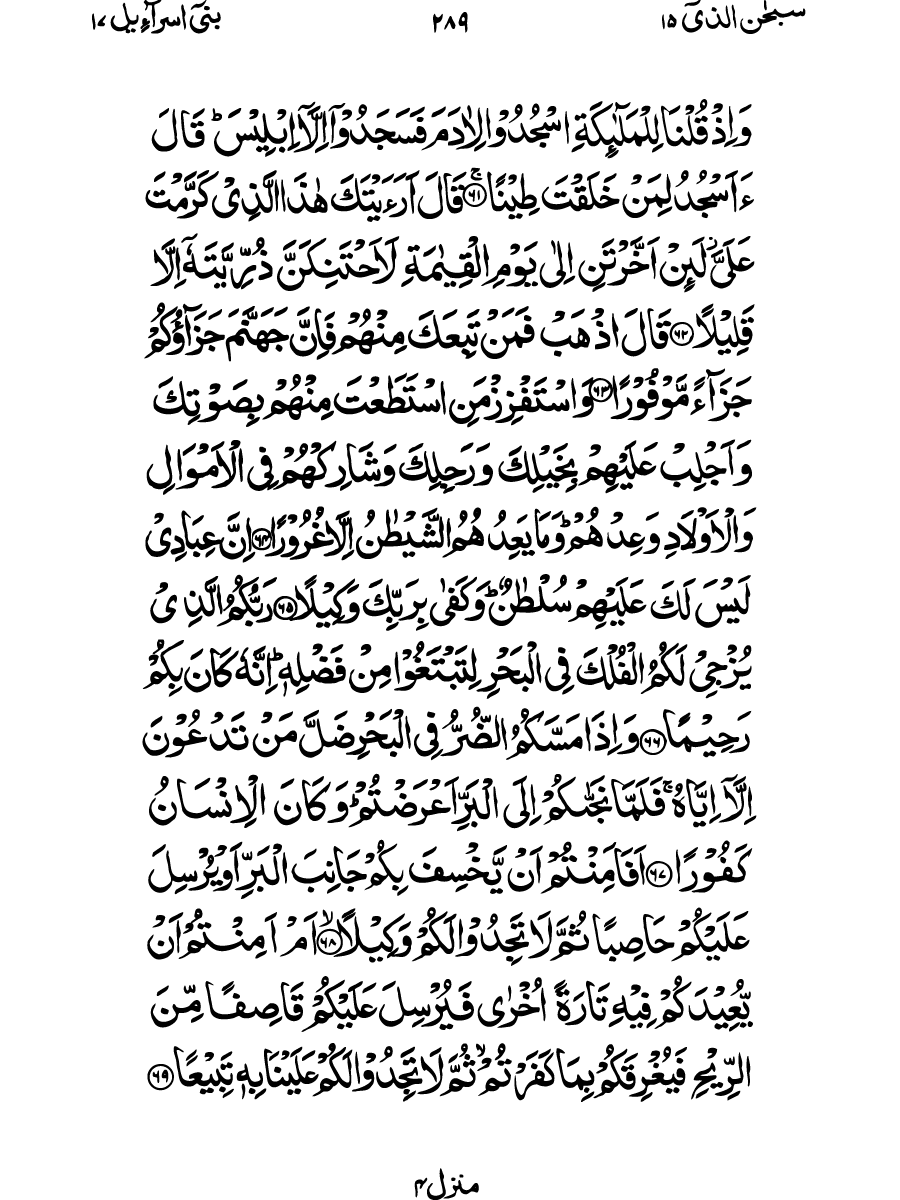 سبحٰن الذیٓ ۱۵ ۲۸۹ بنیٓ اسرآءیل ۱۷
وَاِذْ قُلْنَا لِلْمَلٰٓئِكَةِ اسْجُدُوْا لِاٰدَمَ فَسَجَدُوْۤا اِلَّاۤ اِبْلِيْسَ ؕ قَالَ
ءَاَسْجُدُ لِمَنْ خَلَقْتَ طِيْنًا ۚ‏﴿۶۱﴾ قَالَ اَرَءَيْتَكَ هٰذَا الَّذِىْ كَرَّمْتَ
عَلَىَّ ؗ لَٮِٕنْ اَخَّرْتَنِ اِلٰى يَوْمِ الْقِيٰمَةِ لَاَحْتَنِكَنَّ ذُرِّيَّتَهٗۤ اِلَّا
قَلِيْلًا ﴿۶۲﴾ قَالَ اذْهَبْ فَمَنْ تَبِعَكَ مِنْهُمْ فَاِنَّ جَهَنَّمَ جَزَآؤُكُمْ
جَزَآءً مَّوْفُوْرًا ﴿۶۳﴾ وَاسْتَفْزِزْ مَنِ اسْتَطَعْتَ مِنْهُمْ بِصَوْتِكَ
وَاَجْلِبْ عَلَيْهِمْ بِخَيْلِكَ وَرَجِلِكَ وَشَارِكْهُمْ فِى الْاَمْوَالِ
وَالْاَوْلَادِ وَعِدْهُمْ ؕ وَمَا يَعِدُهُمُ الشَّيْطٰنُ اِلَّا غُرُوْرًا ﴿۶۴﴾ اِنَّ عِبَادِىْ
لَيْسَ لَكَ عَلَيْهِمْ سُلْطٰنٌ ؕ وَكَفٰى بِرَبِّكَ وَكِيْلًا ﴿۶۵﴾ رَبُّكُمُ الَّذِىْ
يُزْجِىْ لَكُمُ الْفُلْكَ فِى الْبَحْرِ لِتَبْتَغُوْا مِنْ فَضْلِهٖ ؕ اِنَّهٗ كَانَ بِكُمْ
رَحِيْمًا ﴿۶۶﴾ وَاِذَا مَسَّكُمُ الضُّرُّ فِى الْبَحْرِ ضَلَّ مَنْ تَدْعُوْنَ
اِلَّاۤ اِيَّاهُ ۚ فَلَمَّا نَجّٰٮكُمْ اِلَى الْبَرِّ اَعْرَضْتُمْ ؕ وَكَانَ الْاِنْسَانُ
كَفُوْرًا ﴿۶۷﴾ اَفَاَمِنْتُمْ اَنْ يَّخْسِفَ بِكُمْ جَانِبَ الْبَرِّ اَوْ يُرْسِلَ
عَلَيْكُمْ حَاصِبًا ثُمَّ لَا تَجِدُوْا لَكُمْ وَكِيْلًا ۙ‏﴿۶۸﴾ اَمْ اَمِنْتُمْ اَنْ
يُّعِيْدَكُمْ فِيْهِ تَارَةً اُخْرٰى فَيُرْسِلَ عَلَيْكُمْ قَاصِفًا مِّنَ
الرِّيْحِ فَيُغْرِقَكُمْ بِمَا كَفَرْتُمْ ۙ ثُمَّ لَا تَجِدُوْا لَكُمْ عَلَيْنَا بِهٖ تَبِيْعًا ﴿۶۹﴾
منزل ۴